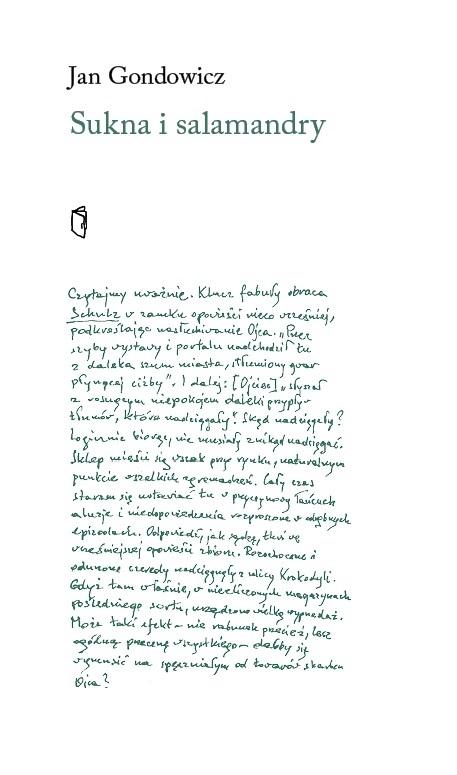 Jan Gondowicz
Sukna i salamandry
Czytajmy uważnie. Klucz fabuły obraca
Schulz w zamku opowieści nieco wcześniej,
podkreślając nasłuchiwanie Ojca. „Przez
szyby wystawy i portalu nadchodził tu
z daleka szum miasta, stłumiony gwar
płynącej ciżby". I dalej: [Ojciec] „słyszał
z rosnącym niepokojem daleki przypływ
tłumów, które nadciągały". Skąd nadciągały?
Logicznie biorąc, nie musiały znikąd nadciągać.
Sklep mieści się wszak przy rynku, naturalnym
punkcie wszelkich zgromadzeń. Cały czas
staram się odtwarzać tu przyczynowy łańcuch
aluzje i niedopowiedzenia rozproszone w odrębnych
epizodach. Odpowiedź, jak sądzę, tkwi we
wcześniejszej opowieści zbioru. Rozochocone i
odurzone czeredy nadciągnęły z ulicy Krokodyli.
Gdyż tam właśnie, w niezliczonych magazynach
pośledniego sortu, urządzono wielką wyprzedaż.
Może taki efekt – nie rabunek przecież, lecz
ogólną przecenę wszystkiego – dałoby się
wymusić na spęczniałym od towarów skarbcu
Ojca?